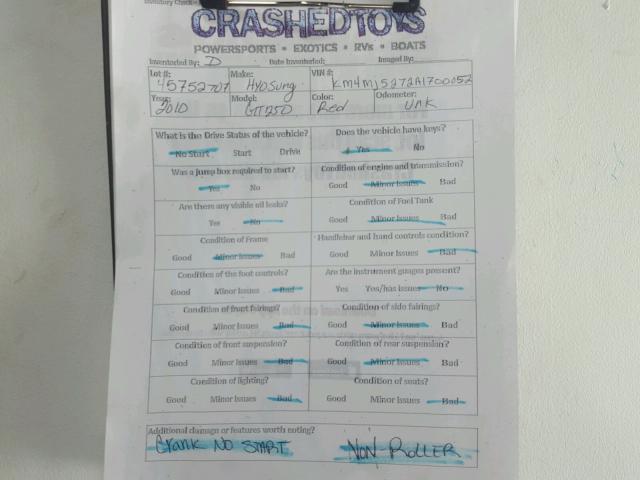 Inventory Check
CRASHEDTOYS
POWERSPORTS • EXOTICS • RVs • BOATS
Inventoried By: D Date Inventoried: Imaged By:
Lot #: 45752707 Make: HYOSung VIN #: KM4MJ5272A1700052
Year: 2010 Model: GT250 Color: Red Odometer: UNK
What is the Drive Status of the vehicle? Does the vehicle have keys?
No Start Start Drive Yes No
Was a jump box required to start? Condition of engine and transmission?
Yes No Good Minor Issues Bad
Are there any visible oil leaks? Condition of Fuel Tank
Yes No Good Minor Issues Bad
Condition of Frame Handlebar and hand controls condition?
Good Minor Issues Bad Good Minor Issues Bad
Condition of the foot controls? Are the instrument guages present?
Good Minor Issues Bad Yes Yes/has issues No
Condition of front fairings? Condition of side fairings?
Good Minor Issues Bad Good Minor Issues Bad
Condition of front suspension? Condition of rear suspension?
Good Minor Issues Bad Good Minor Issues Bad
Condition of lighting? Condition of seats?
Good Minor Issues Bad Good Minor Issues Bad
Additional damage or features worth noting?
Crank No START NON-ROLLER